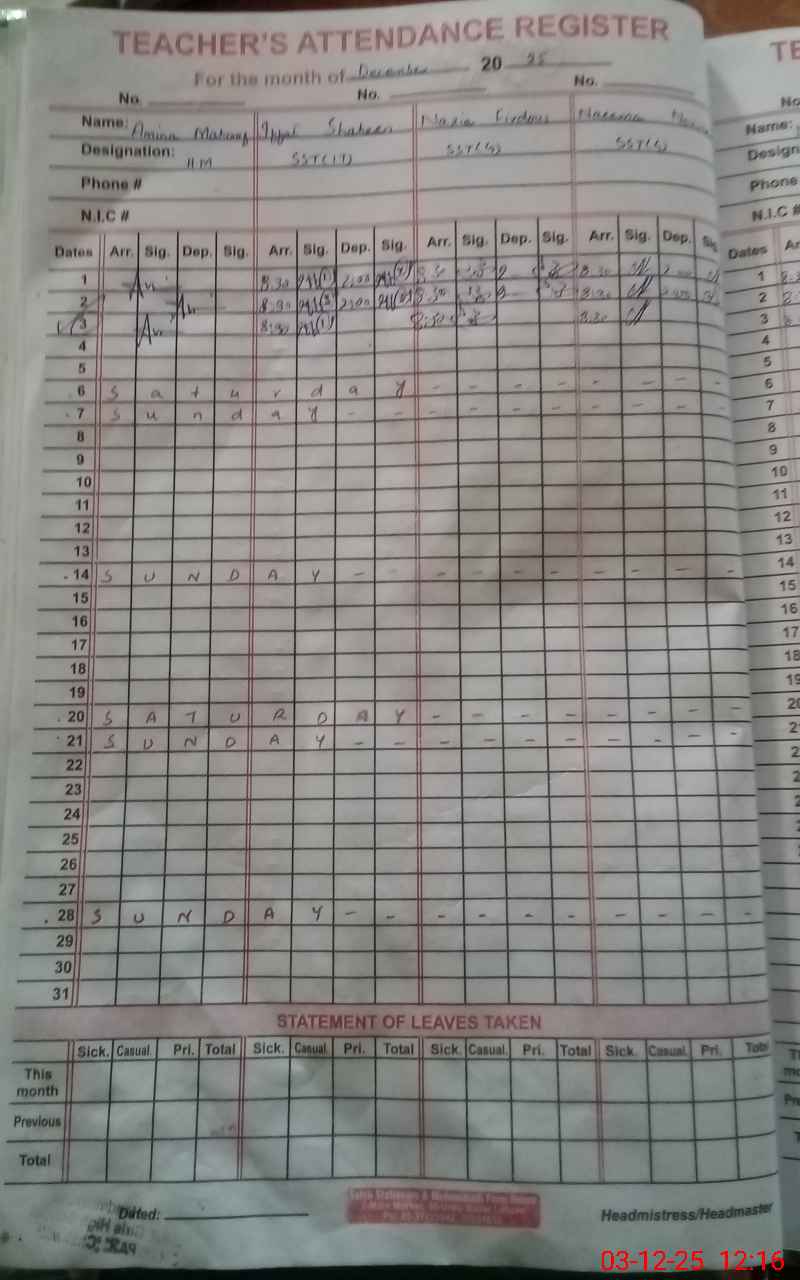 TEACHER'S ATTENDANCE REGISTER
For the month of December 20 25
No. No. No.
Name: Amina Shaheen Nazia Firdous
Designation: H.M SST(IT) SST(S) SST(S)
Phone #
N.I.C #
Dates Arr. Sig. Dep. Sig. Arr. Sig. Dep. Sig. Arr. Sig. Dep. Sig. Arr. Sig. Dep. Sig
1 8.30 2:00 8.30
2 8:30 2:00 8.30
3 8:30 8:30 8.30
4
5
6 S a t u r d a y - - - - - - - -
7 S u n d a y - - - - - - - - - -
8
9
10
11
12
13
14 S U N D A Y - - - - - - - - - -
15
16
17
18
19
20 S A T U R D A Y - - - - - - - -
21 S U N D A Y - - - - - - - - - -
22
23
24
25
26
27
28 S U N D A Y - - - - - - - - - -
29
30
31
STATEMENT OF LEAVES TAKEN
Sick. Casual. Pri. Total Sick. Casual. Pri. Total Sick. Casual. Pri. Total Sick. Casual. Pri. Total
This month
Previous
Total
Dated:
Headmistress/Headmaster
TE
No
Name:
Design
Phone
N.I.C #
Dates Ar
1
2
3
4
5
6
7
8
9
10
11
12
13
14
15
16
17
18
19
03-12-25 12:16